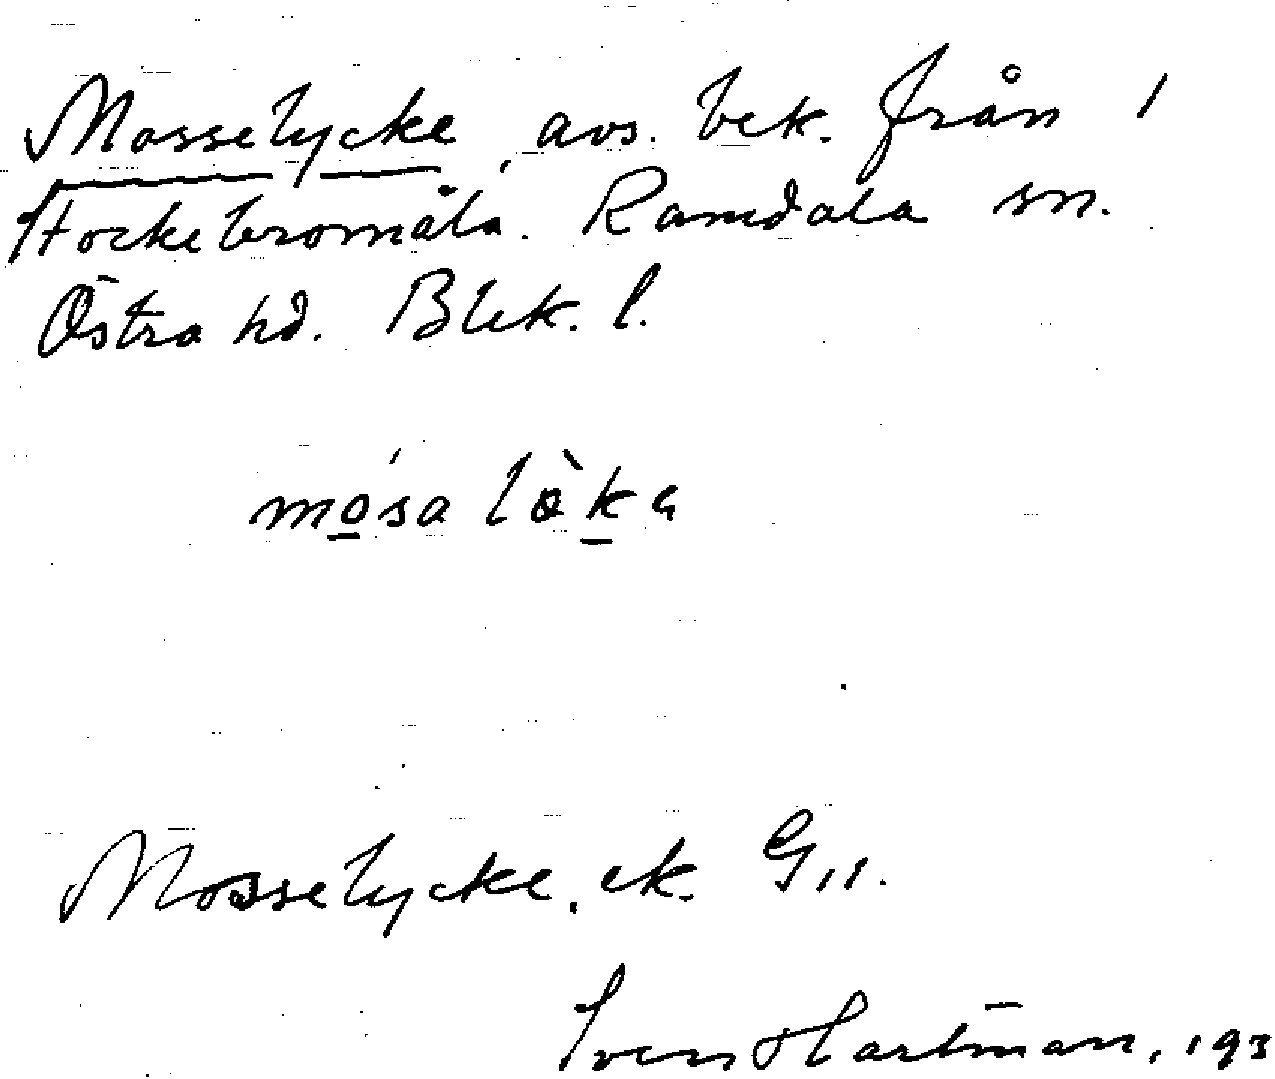 Mosselycke, avs. bek. från 1
Stockebromåla. Ramdala sn.
Östra hd. Blek. l.
mósa lö̀ka
Mosselycke. ek. G11.
Sven Hartman, 193